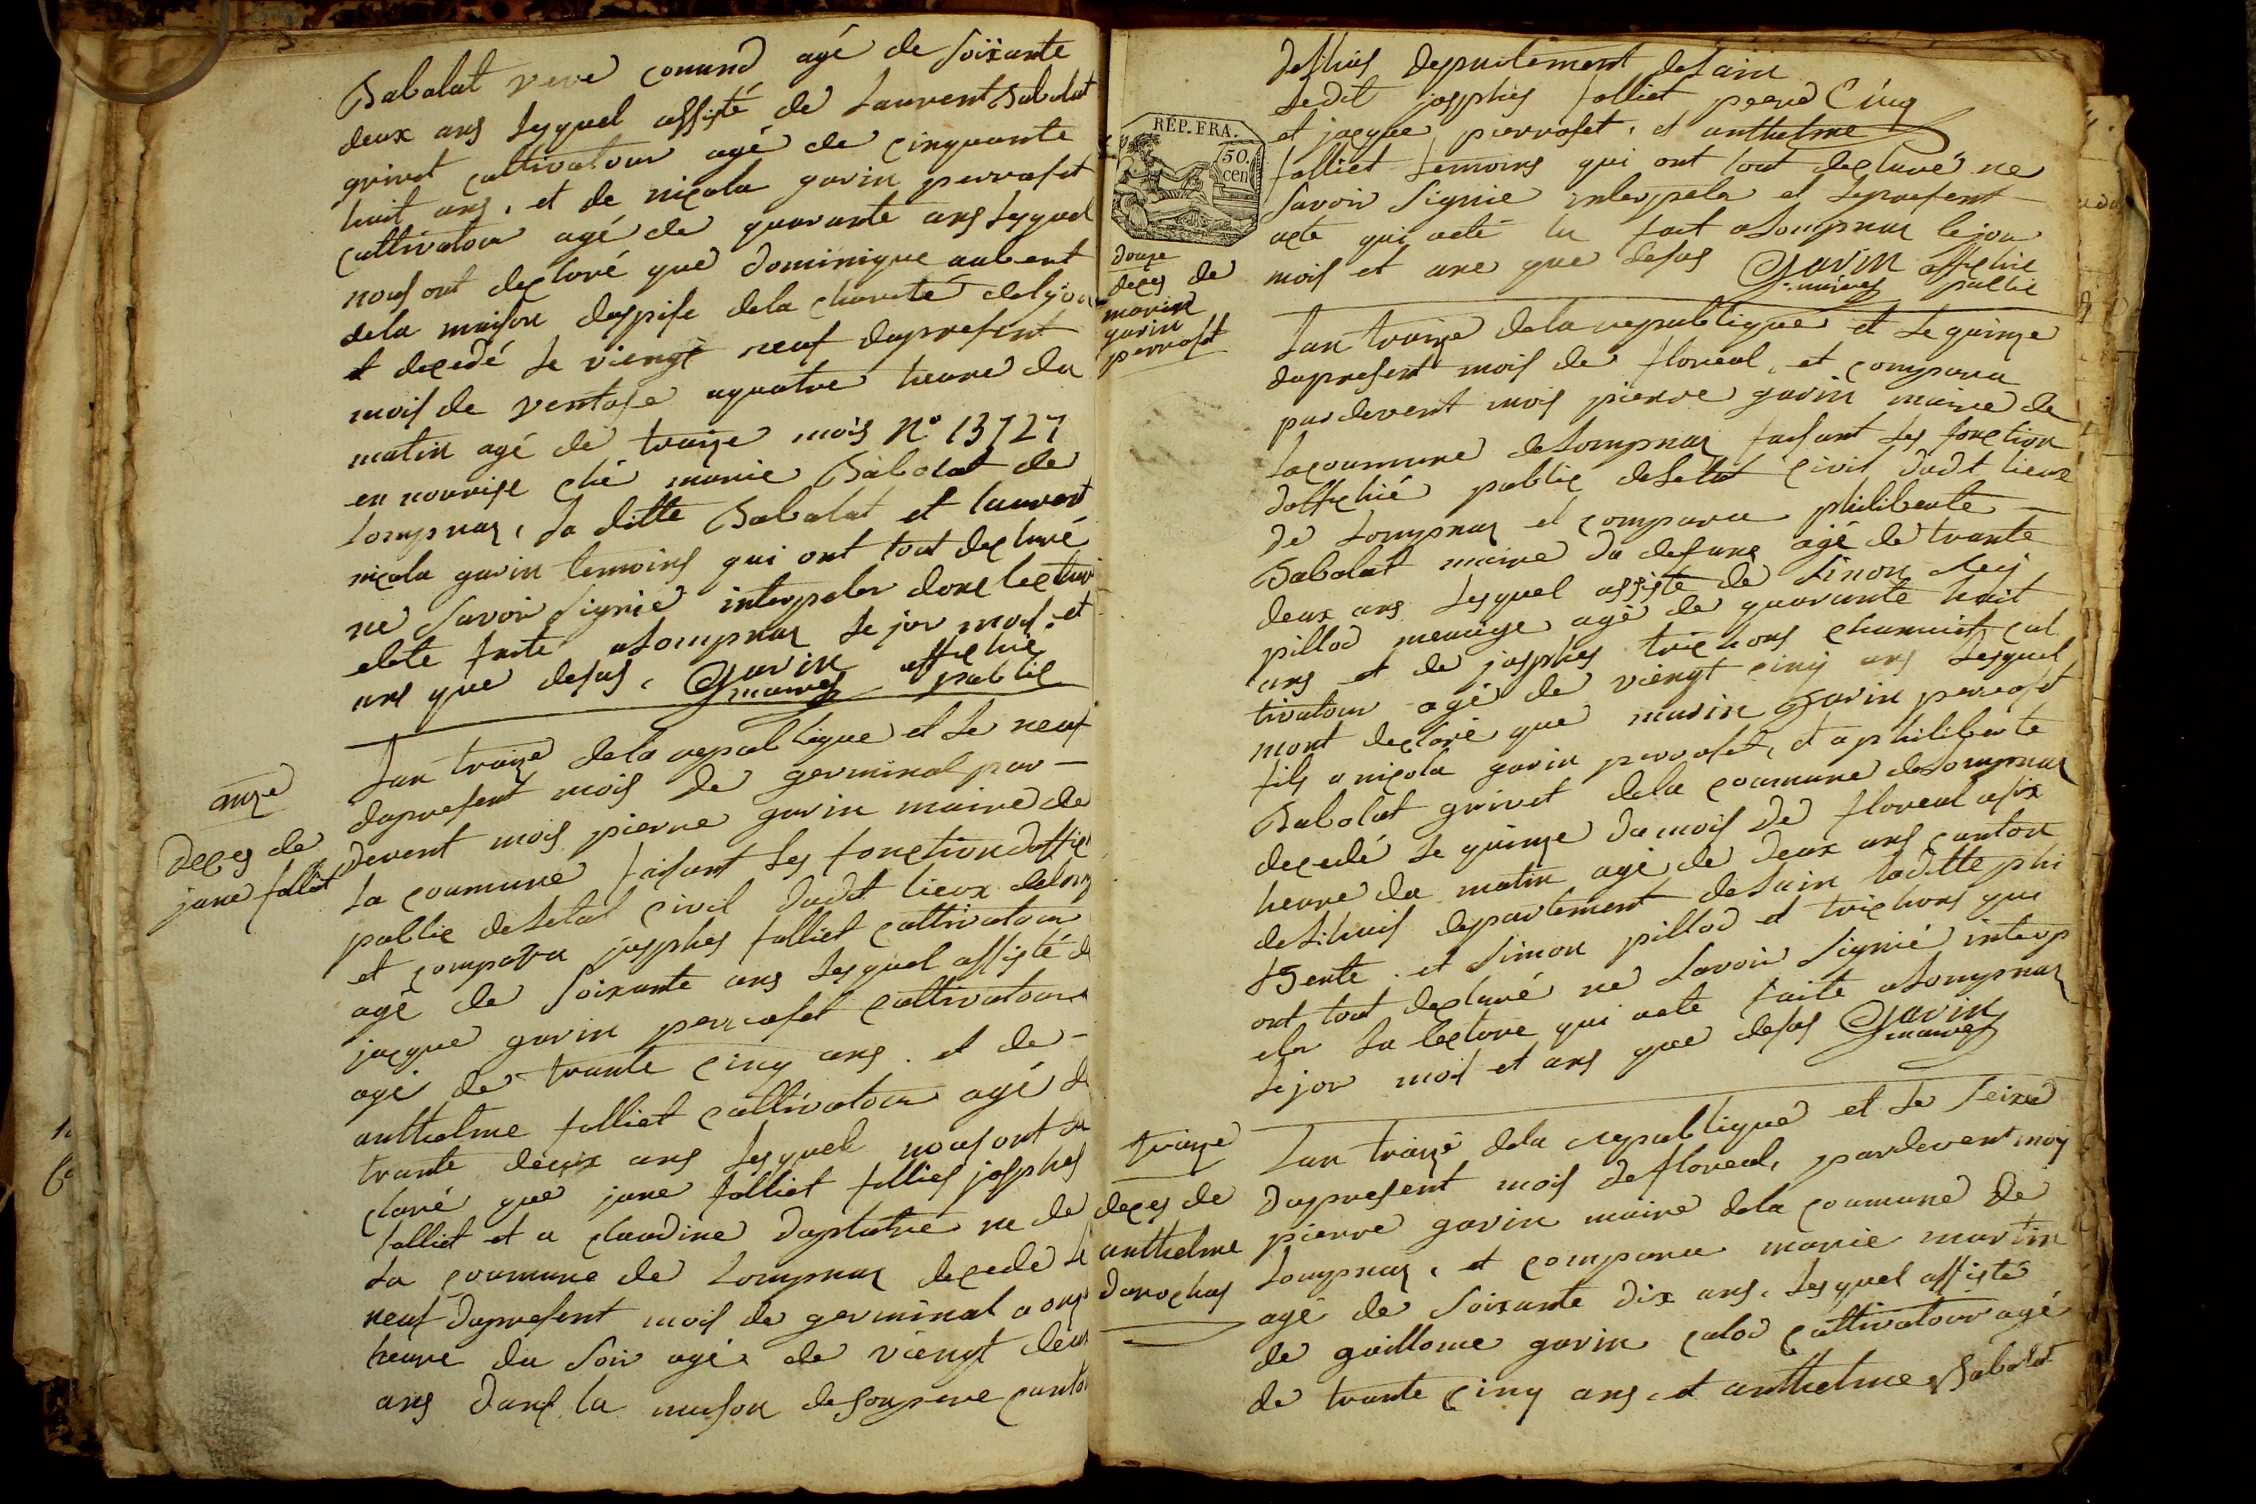 Babolat veve conund agé de Soixante
deux ans Lesquel assisté de Laurent Babolat
grivet cultivatour agé de cinquante
huit ans, et de nicola gavin perrosst
cultivatour agé de quarante ans Lesquel
nous ont declaré que Dominique aubert
dela maison daspise dela charité delyon
et decedé Le viengt neuf dupresent
mois de ventose aquatre heure du
matin agé de traize mois N° 13727
en nourise ché marie Babolat de
Lompnas, La ditte Babolat et laurent
nicola gavin temoins qui ont tout declaré
ne Savoir Signié interpeler donc lectur
elete faite aLompnas Le jor mois et
ans que desus, Gavin officié
maires public
onze
Deces de
jane folliet
Lan traize dela republique et Le neuf
dupresent mois de germinal par-
devent mois pierre gavin maire de
La coumune faisant Les fonction doffici
public deLetat civil dudit lieux delomp
et compara josphes folliet cultivatour
agé de Soixante ans Lesquel assisté de
jacque gavin perrosset cultivatour
agé de trante cinq ans. et de-
anthelme folliet cultivatour agé de
trante deux ans Lesquel nous ont de
claré que jane folliet fillies josphes
folliet et a claudine Duplatre ne de
La coumune de Lompnas decede Le
neuf dupresent mois de germinal a onze
heure du Soir agé de viengt deux
ans dans la maison desonpere canton
deLhuis departement deLain
Ledit josphes folliet peere Cinq
et jacque perrosset, et anthelme
folliet temoins qui ont tout declaré ne
Savoir Signie interpela et Lepresent
acte qui acté lu fait aLompnas lejour
mois et ane que desus Gavin officié
maires public
RÉP. FRA.
50.
cen
douze
deces de
marin
gavin
perrosst
Lan traize dela republique et Le quinze
dupresent mois de floreal, et compara
pardevent mois pierre gavin maire de
Lacoumune deLompnas faisant Les fonction
dofficié public deLetat civil dudt lieux
de Lompnas et compara philiberte -
Babolat maire du defunc agé de trante
deux ans Lesquel assisté de Simon
pillod agé de quarante huit
ans et de josphes trichons cul
tivatour agé de viengt cinq ans Lesquel
mont declaré que marin gavin perrosst
fils a nicola gavin perrosst, et a philiberte
Babolat grivet dela coumune deLompnas
decedé Le quinze dumois de floreal asix
heure du matin agé de deux ans canton
deLihuis departement deLain laditte phi
Berte. et Simon pillod et trichons qui
ont tout declaré ne Savoir Signié interp
eler La lectore qui acte faite aLompnas
Le jor mois et ans que desus Gavin
maires
traize
deces de
anthelme
Durochas
Lan traize dela republique et Le Seixe
dupresent mois defloreal, pardevent moy
pierre gavin maire dela coumune de
Lompnas, et compara marie martin
agé de Soixante dix ans, Lesquel assisté
de guillome gavin calod cultivatour agé
de trante cinq ans, et anthelme Babolat